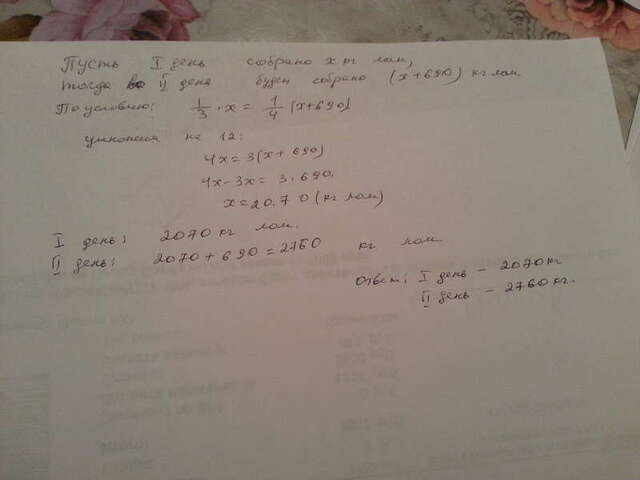 Пусть I день собрано x кг лом,
тогда во II день будет собрано (x+690) кг лом.
По условию: 1/3 · x = 1/4 (x+690)
умножим на 12:
4x = 3(x + 690)
4x - 3x = 3 · 690.
x = 2070 (кг лом)
I день: 2070 кг лом.
II день: 2070 + 690 = 2760 кг лом
Ответ: I день – 2070 кг
II день – 2760 кг.